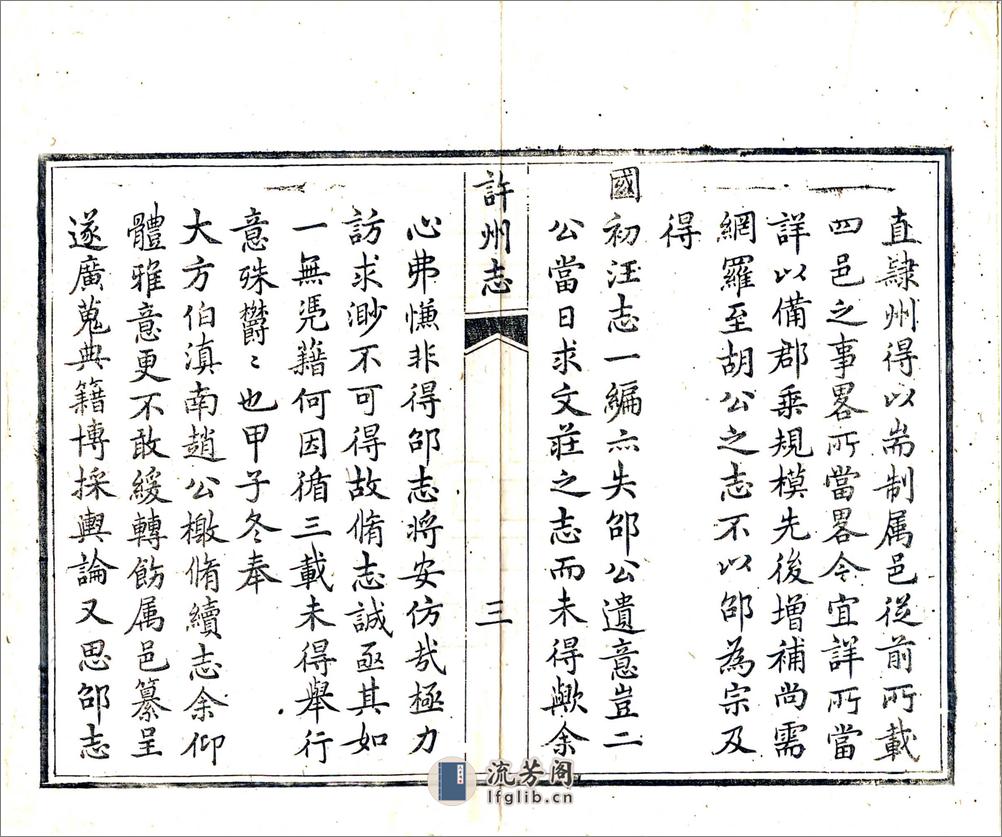 直隸州得以耑制属邑從前所載
四邑之事畧所當畧今宜詳所當
詳以備郡乗規模先後增補尚需
網羅至胡公之志不以邵為宗及
得
國初汪志一編亦失邵公遺意豈二
公當日求文莊之志而未得歟余
許州志
三
心弗慊非得邵志將安仿㢤極力
訪求渺不可得故脩志誠亟其如
一無凭藉何因循三載未得舉行
意殊欝〻也甲子冬奉
大方伯滇南趙公檄脩續志余仰
體雅意更不敢緩轉飭属邑纂呈
遂廣蒐典籍博採輿論又思邵志
流芳阁
lfglib.cn